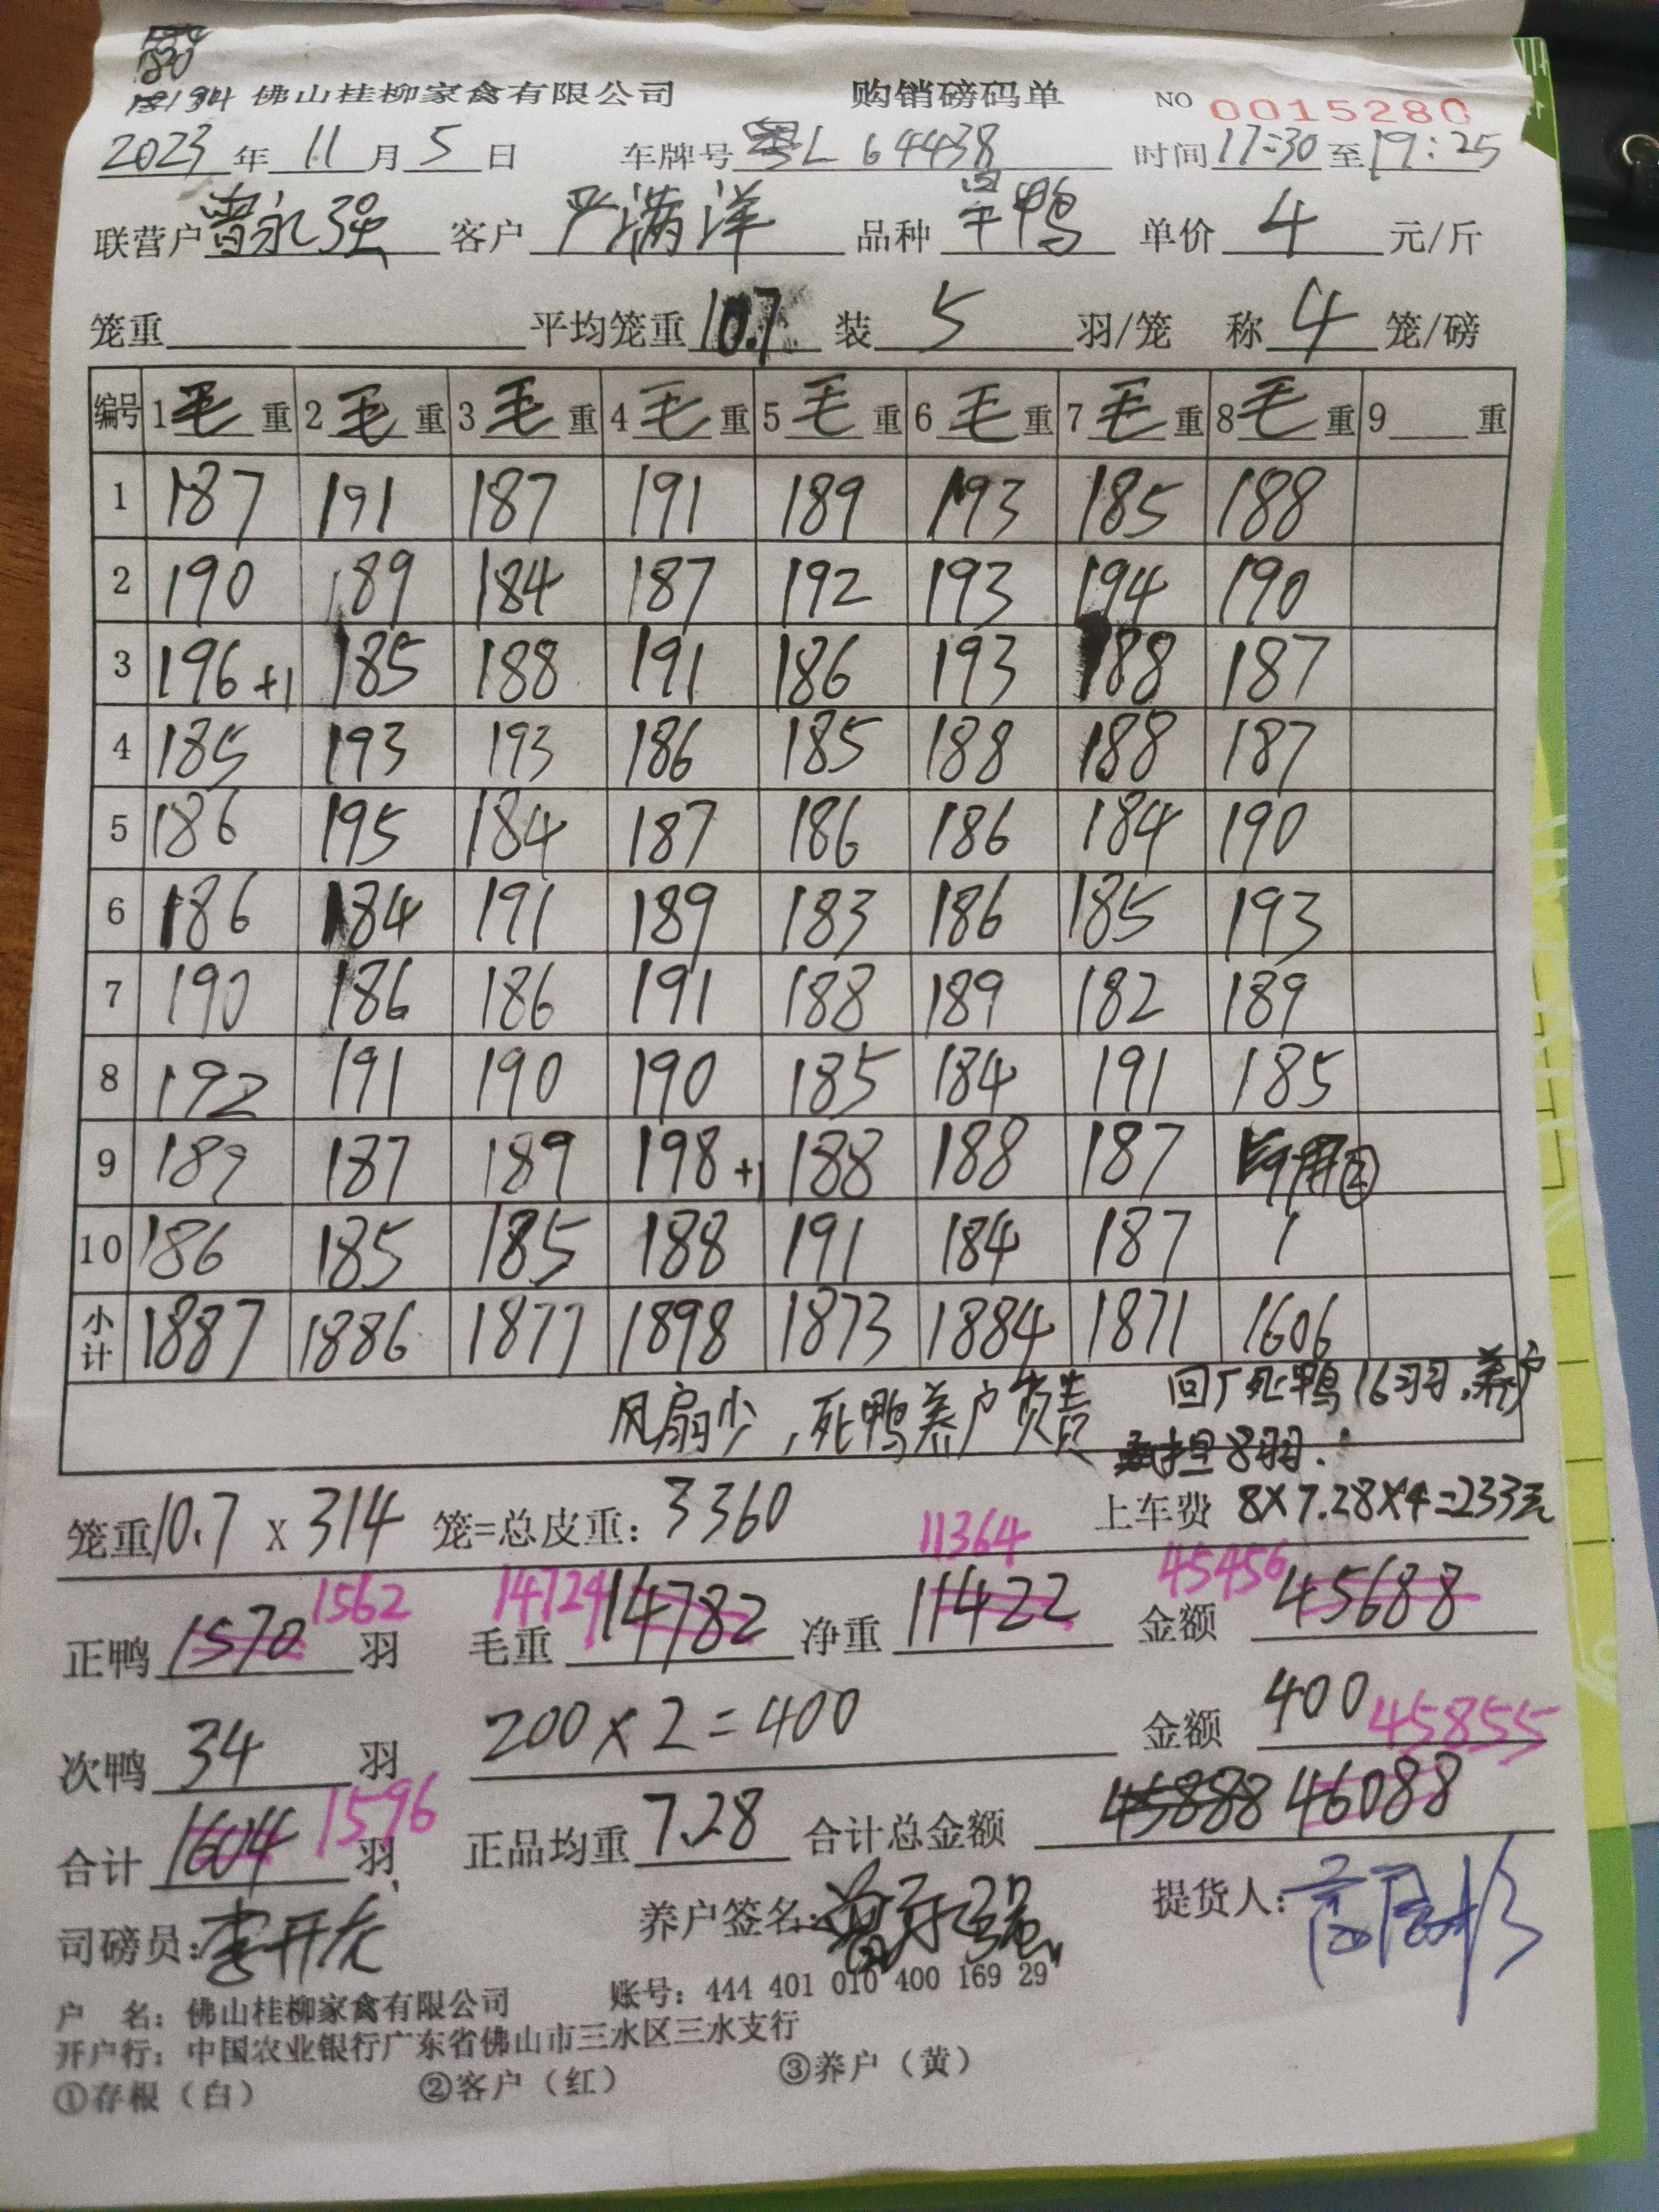 18134 佛山桂柳家禽有限公司 购销磅码单 NO 0015280
2023 年 11 月 5 日 车牌号 粤L 64438 时间 17:30 至 19:25
联营户 曾永强 客户 严满洋 品种 旱鸭 单价 4 元/斤
笼重 平均笼重 10.7 装 5 羽/笼 称 4 笼/磅
编号 1 毛 重 2 毛 重 3 毛 重 4 毛 重 5 毛 重 6 毛 重 7 毛 重 8 毛 重 9 重
1 187 191 187 191 189 193 185 188
2 190 189 184 187 192 193 194 190
3 196+1 185 188 191 186 193 188 187
4 185 193 193 186 185 188 188 187
5 186 195 184 187 186 186 184 190
6 186 184 191 189 183 186 185 193
7 190 186 186 191 188 189 182 189
8 192 191 190 190 185 184 191 185
9 189 187 189 198+1 188 188 187
10 186 185 185 188 191 184 187 1
小计 1887 1886 1877 1898 1873 1884 1871 1606
风扇少，死鸭养户负责 回厂死鸭16羽，养户
承担8羽.
笼重 10.7 x 314 笼=总皮重: 3360 上车费 8×7.28×4=233元
11364
正鸭 1570 1562 羽 毛重 14724 14782 净重 11422 45456 金额 45688
次鸭 34 羽 200×2=400 金额 400 45855
合计 1604 1596 羽 正品均重 7.28 合计总金额 45888 46088
司磅员: 李开 养户签名: 曾永强 提货人:
户 名: 佛山桂柳家禽有限公司 账号: 444 401 010 400 169 29
开户行: 中国农业银行广东省佛山市三水区三水支行
①存根（白） ②客户（红） ③养户（黄）